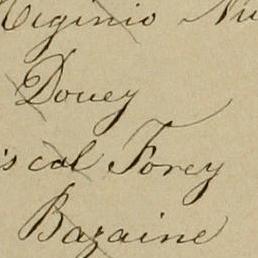 Virginio Nu
Douey
is cal Forey
Bazaine